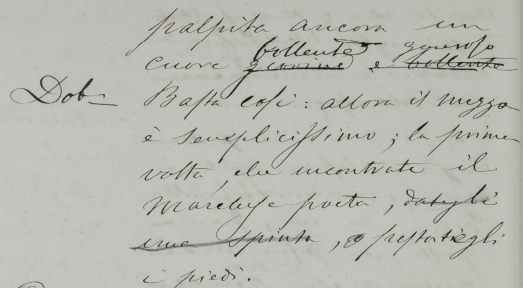 palpita ancora un
bollente generoso
cuore giovine e bollente
Dob- Basta così: allora il mezzo
è semplicissimo; la prima
volta, che incontrate il
Marchese poeta, dategli
una spinta, o pestategli
i piedi.